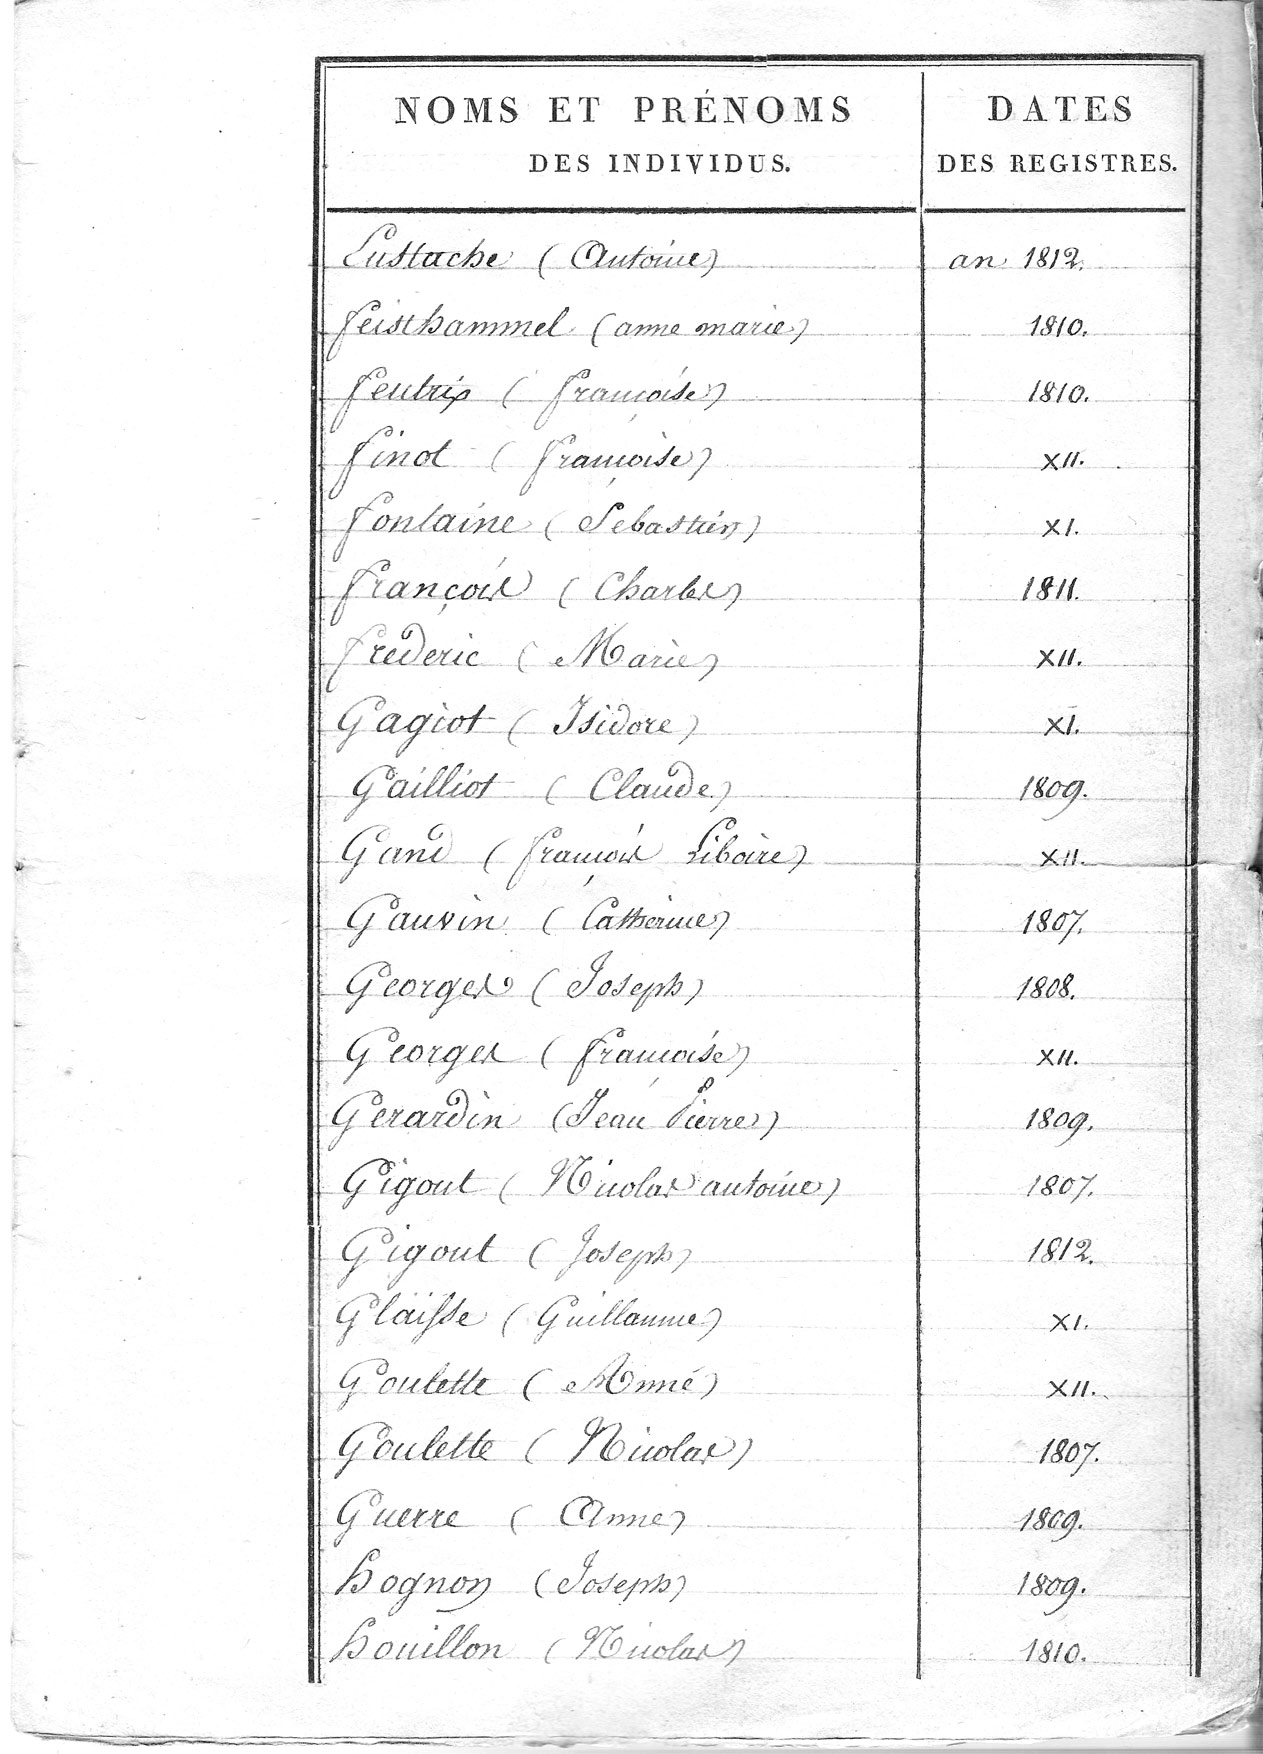 NOMS ET PRÉNOMS DATES
DES INDIVIDUS. DES REGISTRES.
Eustache (Antoine) an 1812.
Feisthammel (anne marie) 1810.
Feutrix (françoise) 1810.
Finot (françoise) XII.
Fontaine (Sebastien) XI.
François (Charles) 1811.
Frederic (Marie) XII.
Gagiot (Isidore) XI.
Gailliot (Claude) 1809.
Gand (françois Liboire) XII.
Gauvin (Catherine) 1807.
Georges (Joseph) 1808.
Georges (françoise) XII.
Gerardin (Jean Pierre) 1809.
Gigout (Nicolas antoine) 1807.
Gigout (Joseph) 1812.
Glaisse (Guillaume) XI.
Goulette (Anne) XII.
Goulette (Nicolas) 1807.
Guerre (Anne) 1809.
hognon (Joseph) 1809.
houillon (Nicolas) 1810.